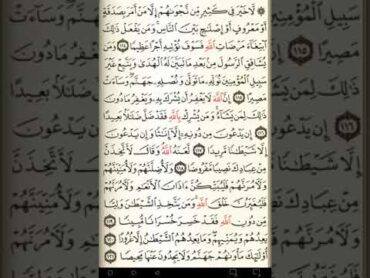 ۞ لَّا خَيْرَ فِى كَثِيرٍ مِّن نَّجْوَىٰهُمْ إِلَّا مَنْ أَمَرَ بِصَدَقَةٍ
أَوْ مَعْرُوفٍ أَوْ إِصْلَٰحٍۭ بَيْنَ ٱلنَّاسِ وَمَن يَفْعَلْ ذَٰلِكَ
ٱبْتِغَآءَ مَرْضَاتِ ٱللَّهِ فَسَوْفَ نُؤْتِيهِ أَجْرًا عَظِيمًا ١١٤
وَمَن يُشَاقِقِ ٱلرَّسُولَ مِنۢ بَعْدِ مَا تَبَيَّنَ لَهُ ٱلْهُدَىٰ وَيَتَّبِعْ غَيْرَ
سَبِيلِ ٱلْمُؤْمِنِينَ نُوَلِّهِۦ مَا تَوَلَّىٰ وَنُصْلِهِۦ جَهَنَّمَ وَسَآءَتْ
مَصِيرًا ١١٥ إِنَّ ٱللَّهَ لَا يَغْفِرُ أَن يُشْرَكَ بِهِۦ وَيَغْفِرُ مَا دُونَ
ذَٰلِكَ لِمَن يَشَآءُ وَمَن يُشْرِكْ بِٱللَّهِ فَقَدْ ضَلَّ ضَلَٰلًۢا بَعِيدًا
١١٦ إِن يَدْعُونَ مِن دُونِهِۦٓ إِلَّآ إِنَٰثًا وَإِن يَدْعُونَ
إِلَّا شَيْطَٰنًا مَّرِيدًا ١١٧ لَّعَنَهُ ٱللَّهُ وَقَالَ لَأَتَّخِذَنَّ
مِنْ عِبَادِكَ نَصِيبًا مَّفْرُوضًا ١١٨ وَلَأُضِلَّنَّهُمْ وَلَأُمَنِّيَنَّهُمْ
وَلَءَامُرَنَّهُمْ فَلَيُبَتِّكُنَّ ءَاذَانَ ٱلْأَنْعَٰمِ وَلَءَامُرَنَّهُمْ
فَلَيُغَيِّرُنَّ خَلْقَ ٱللَّهِ وَمَن يَتَّخِذِ ٱلشَّيْطَٰنَ وَلِيًّا
مِّن دُونِ ٱللَّهِ فَقَدْ خَسِرَ خُسْرَانًا مُّبِينًا ١١٩
يَعِدُهُمْ وَيُمَنِّيهِمْ وَمَا يَعِدُهُمُ ٱلشَّيْطَٰنُ إِلَّا غُرُورًا ١٢٠
أُو۟لَٰٓئِكَ مَأْوَىٰهُمْ جَهَنَّمُ وَلَا يَجِدُونَ عَنْهَا مَحِيصًا ١٢١